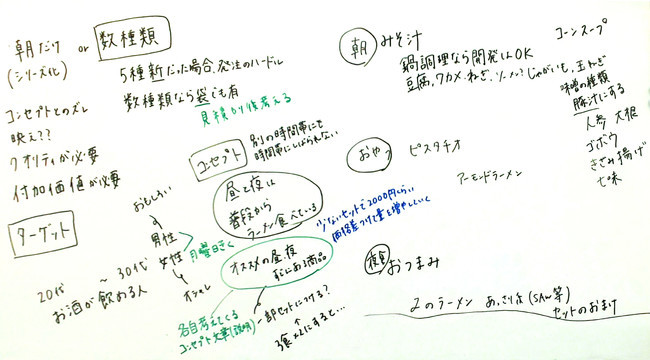 朝だけ or 数種類
(シリーズ化)
5種新だった場合、発注のハードル
数種類なら袋でも有
見積かり後考える
コンセプトとのズレ
映え??
クオリティが必要
付加価値が必要
コンセプト
別の時間帯にも
時間帯にしばられない
昼と夜は
普段から
ラーメン食べている
少ないセットで2000円くらい
価格差つけて量を増やしていく
ターゲット
おもしろい
男性
女性
オシャレ
月曜日きく
20代 〜 30代
お酒が飲める人
オススメの昼、夜
私にある商品
各自考えてくる
コンセプト文章(説明)
一部セットにつける?
3食×2にすると…
朝 みそ汁
鍋調理なら開発はOK
豆腐、ワカメ、ねぎ、ソーメン?じゃがいも、玉ねぎ
コーンスープ
味噌の種類
豚汁にする
人参 大根
ゴボウ
きざみ揚げ
七味
おやつ ピスタチオ
アーモンドラーメン
夜食 おつまみ
〆のラーメン あっさりよ (SAW等)
セットのおまけ